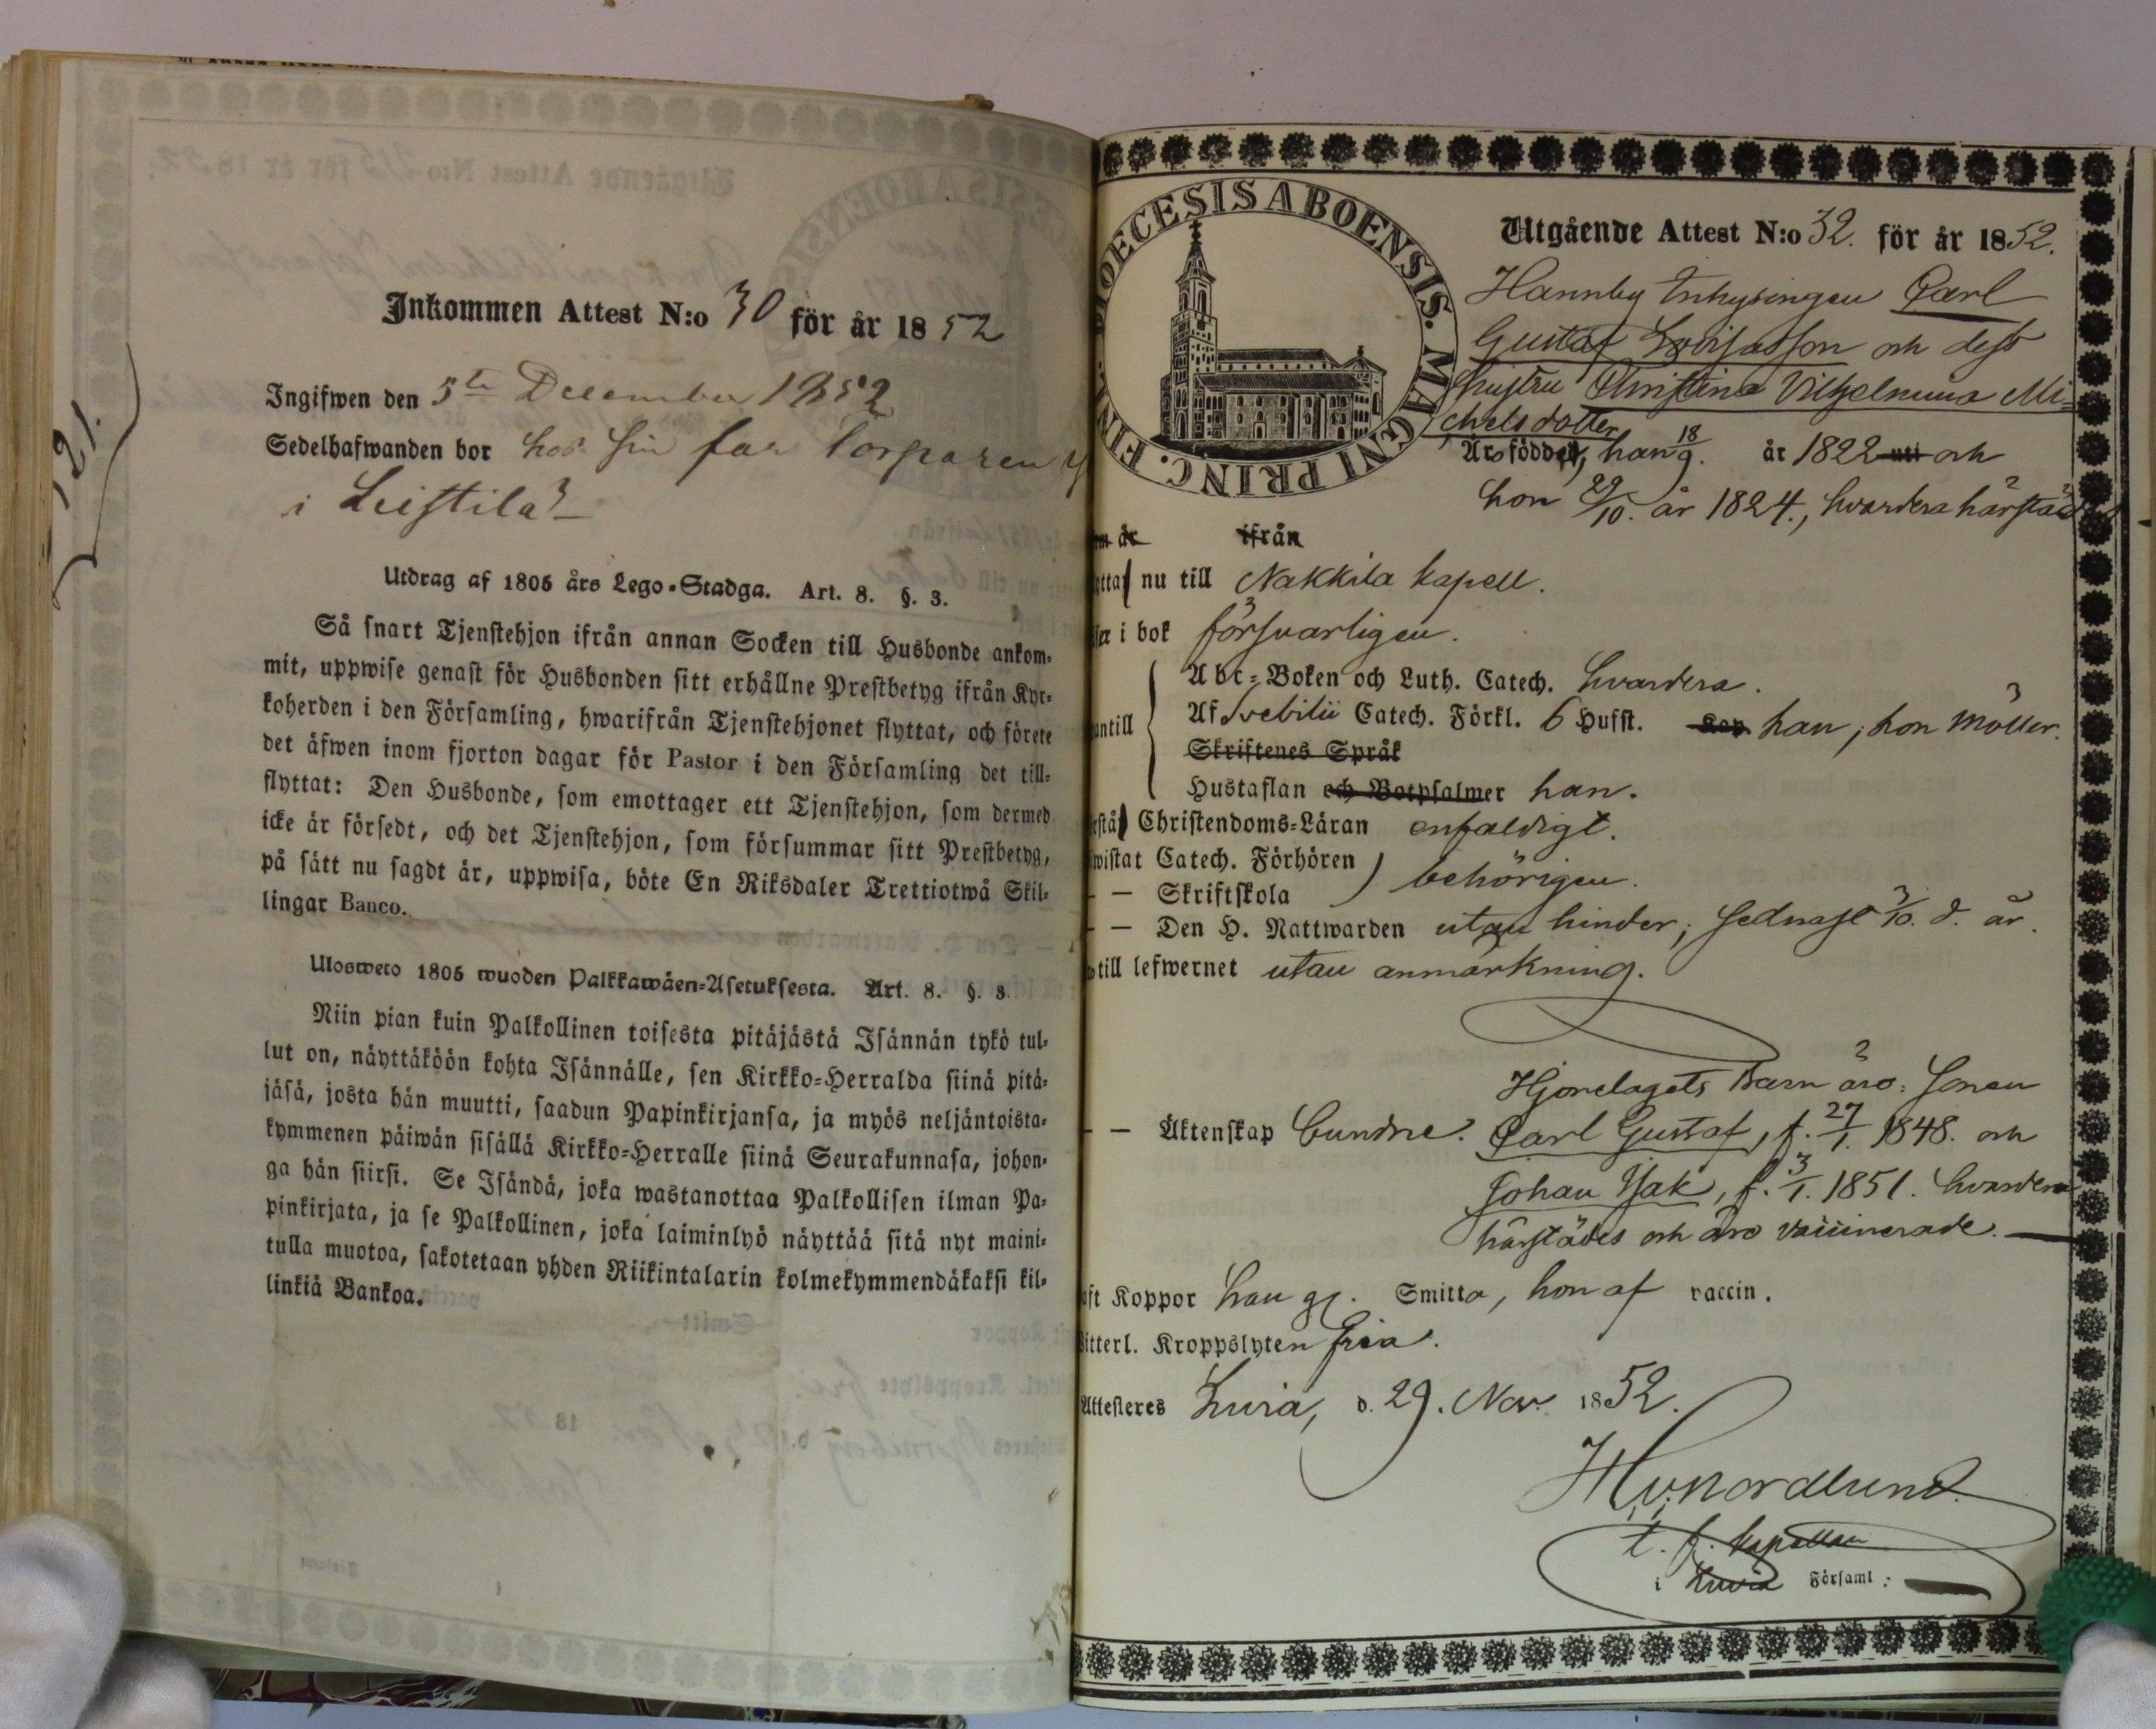 Inkommen Attest N:o 30 för år 1852
Ingifwen den 5te December 1852
Sedelhafwanden bor hos sin far Torparen
i Leistilä
121.
Utdrag af 1805 års Lego-Stadga. Art. 8. §. 3.
Så snart Tjenstehjon ifrån annan Socken till Husbonde ankom-
mit, uppwise genast för Husbonden sitt erhållne Prestbetyg ifrån Kyr-
koherden i den Församling, hwarifrån Tjenstehjonet flyttat, och förete
det äfwen inom fjorton dagar för Pastor i den Församling det till-
flyttat: Den Husbonde, som emottager ett Tjenstehjon, som dermed
icke är försedt, och det Tjenstehjon, som försummar sitt Prestbetyg,
på sätt nu sagdt är, uppwisa, böte En Riksdaler Trettiotwå Skil-
lingar Banco.
Ulosweto 1805 wuoden Palkkawäen-Asetuksesta. Art. 8. §. 3.
Niin pian kuin Palkollinen toisesta pitäjästä Isännän tykö tul-
lut on, näyttäköön kohta Isännälle, sen Kirkko-Herralda siinä pitä-
jäsä, josta hän muutti, saadun Papinkirjansa, ja myös neljäntoista-
kymmenen päiwän sisällä Kirkko-Herralle siinä Seurakunnasa, johon-
ga hän siirsi. Se Isändä, joka wastanottaa Palkollisen ilman Pa-
pinkirjata, ja se Palkollinen, joka laiminlyö näyttää sitä nyt maini-
tulla muotoa, sakotetaan yhden Riikintalarin kolmekymmendäkaksi kil-
linkiä Bankoa.
DIOECESIS ABOENSIS. MAGNI PRINC. FINL.
Utgående Attest N:o 32. för år 1852.
Hannby Inhysingen Carl
Gustaf Lovisasson och dess
hustru Christina Vilhelmina Mi=
chelsdotter
Äro födde, han 18/9. år 1822 uti och
hon 29/10. år 1824., hvardera härstädes
är ifrån
nu till Nakkila kapell.
i bok försvarligen.
antill
Abc-Boken och Luth. Catech. hvardera.
Af Svebilii Catech. Förkl. 6 Hufst. Cap han, hon möller.
Skriftenes Språk
Hustaflan och Botpsalmer han.
Christendoms-Läran enfaldigt.
wistat Catech. Förhören
— Skriftskola behörigen.
— Den H. Nattwarden utan hinder, sednast 3/10. d. år.
till lefwernet utan anmärkning.
Hjonelagets Barn äro: sonen
— Äktenskap bundne. Carl Gustaf, f. 27/1. 1848. och
Johan Isak, f. 3/1. 1851. hvardera
härstädes och äro vaccinerade.
aft Koppor han gg. Smitta, hon af vaccin.
itterl. Kroppslyten fria.
Attesteres Luvia, d. 29. Nov. 1852.
Nordlund.
t. f. kapellan
i Luvia Församl: